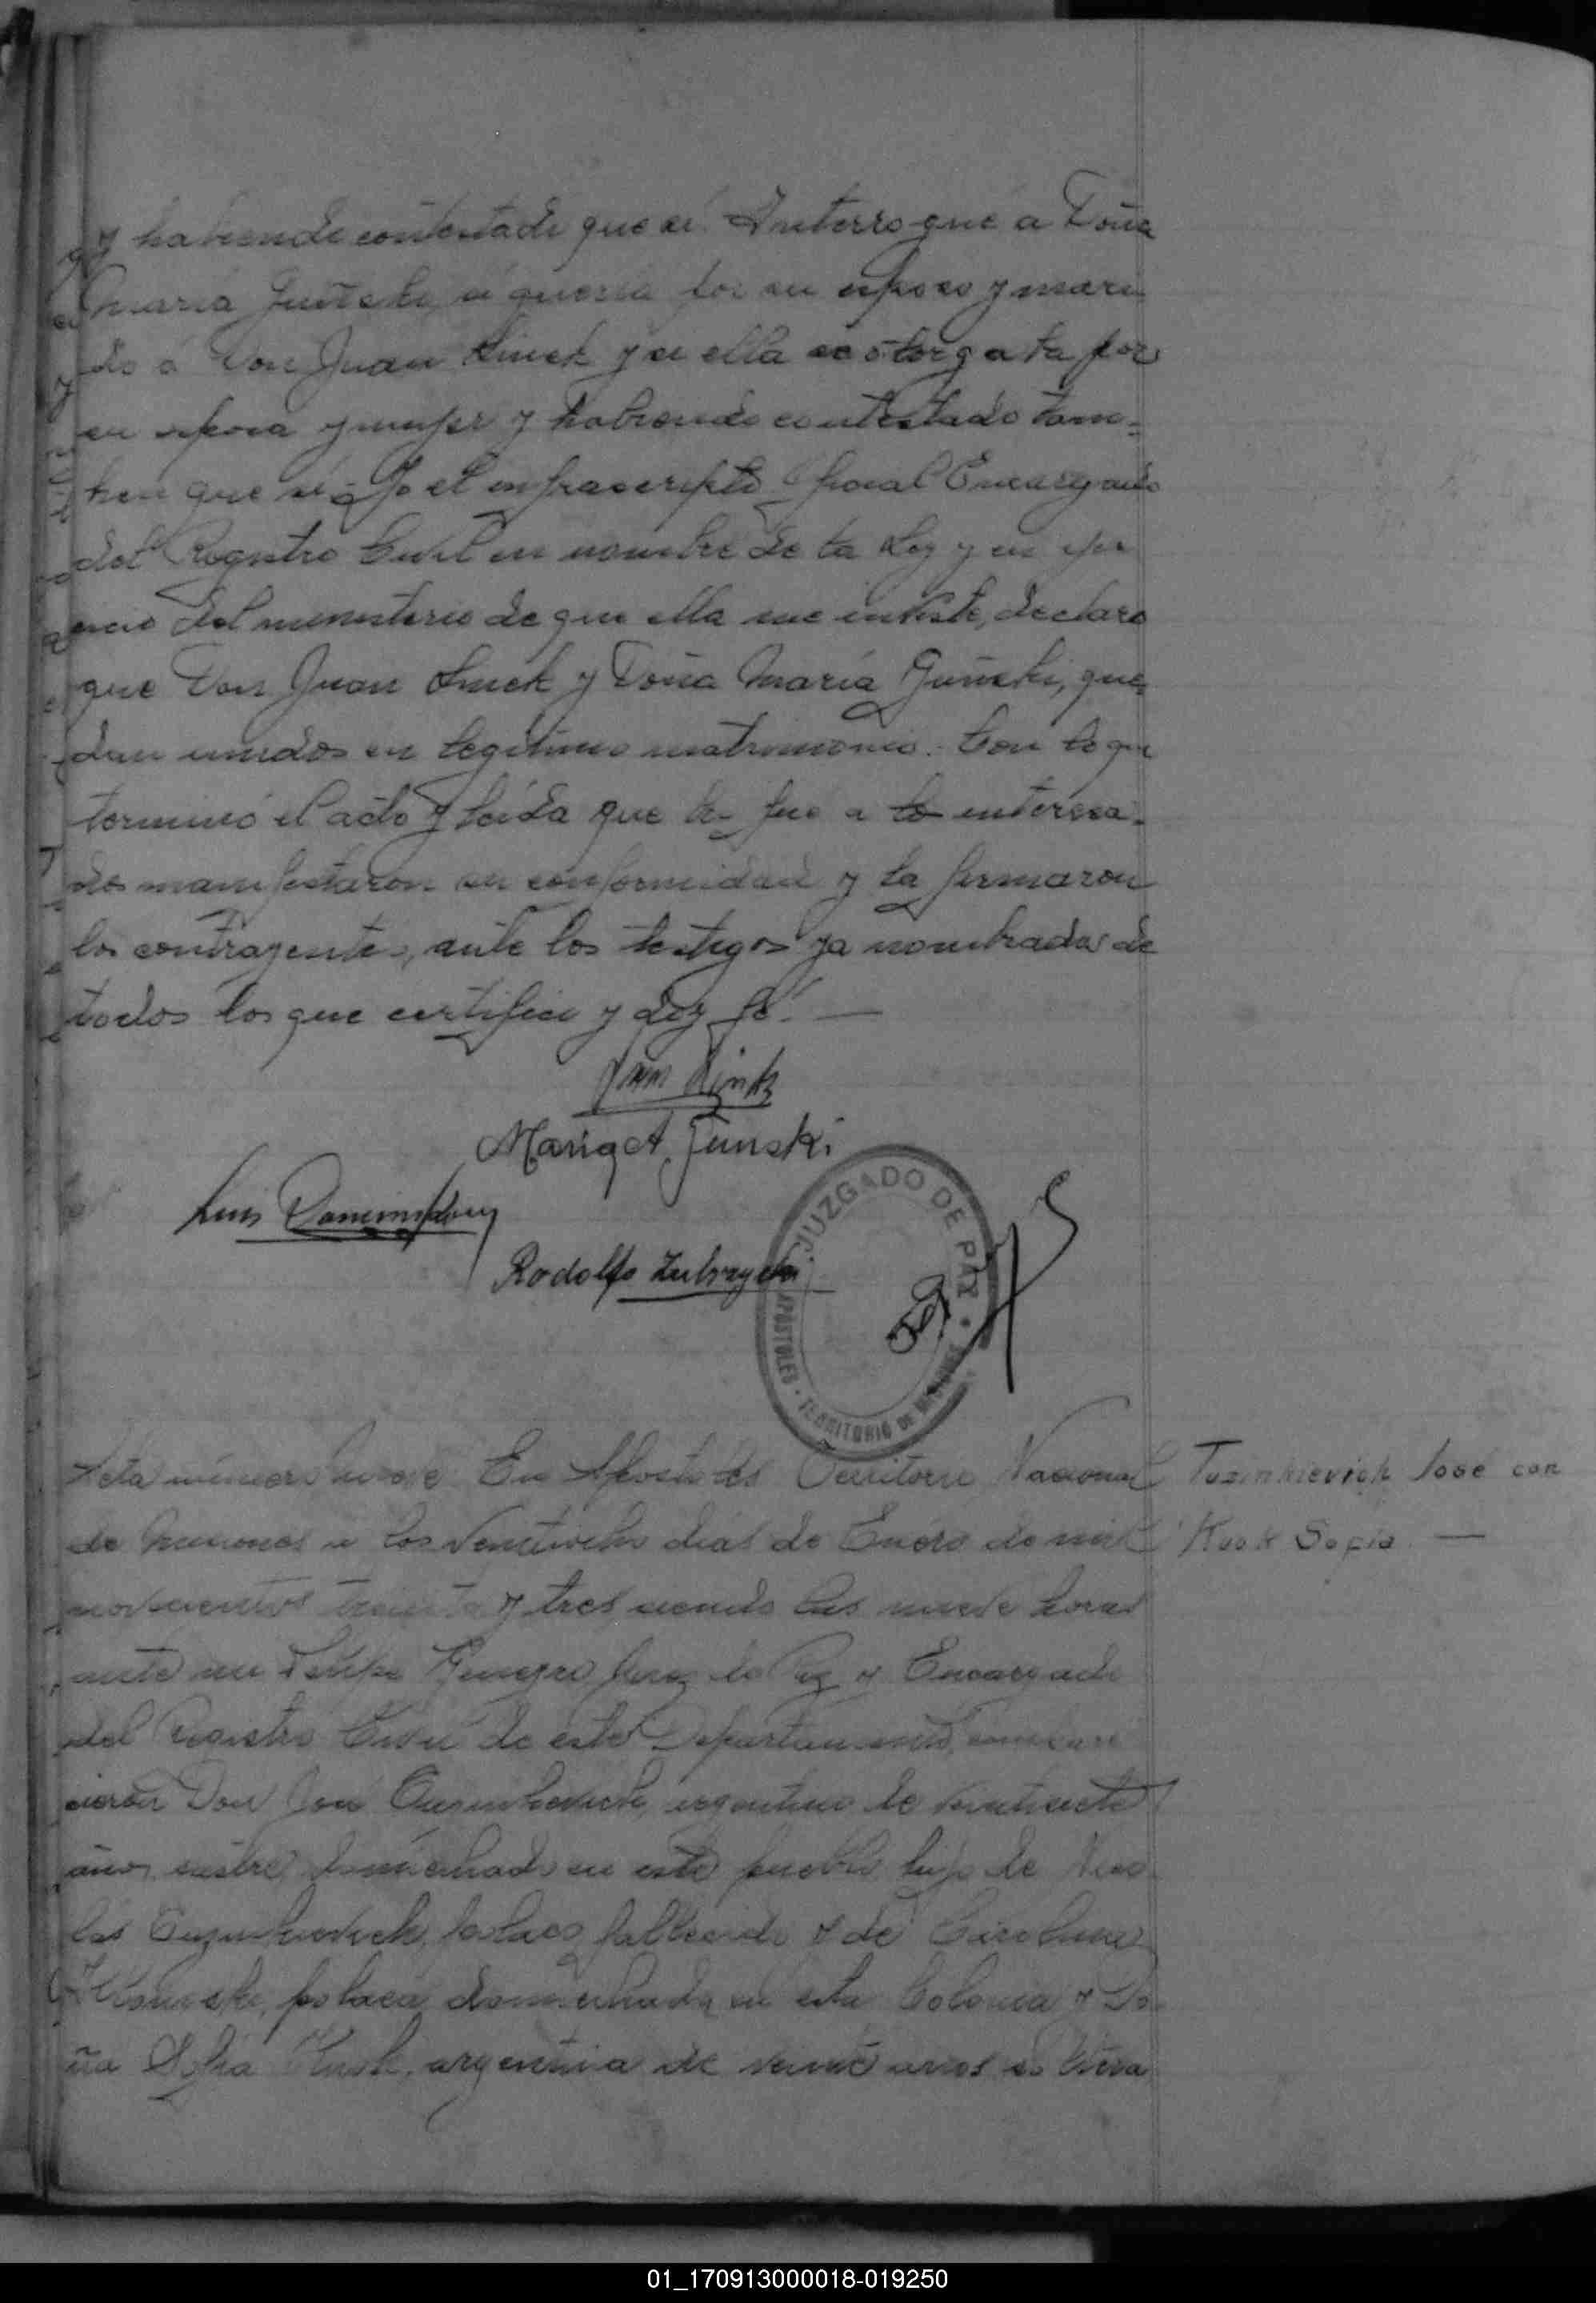 y habiendo contestado que sí. Interrogué a Doña
María Junski, si quería por su esposo y mari
do á Don Juan Linek y si ella se otorgata por
su esposa y mujer y habiendo contestado tam=
bien que sí, Yo el infrascripto Oficial Encargado
del Registro Civil en nombre de la Ley y en ejer
cicio del ministerio de que ella me inviste, declaro
que Don Juan Linek y Doña María Junski, que=
dan unidos en legítimo matrimonio. Con lo que
terminó el acto y leída que les fué a los interesa=
dos manifestaron su conformidad y la firmaron
los contrayentes, ante los testigos ya nombrados de
todos los que certifico y doy fé. —
Juan
Junski
Luis
Rodolfo
JUZGADO DE PAZ
APOSTOLES · TERRITORIO DE MISIONES
Acta número nueve. En Apostoles Territorio Nacional
Tuzinkievich José con
de Misiones a los Veintiocho días de Enero de mil
Kusk Sofia. —
novecientos treinta y tres siendo las nueve horas
ante mi Juez de Paz y Encargado
del Registro Civil de este Departamento, compare
cieron Don José Tuzinkievich, argentino de veintisiete
años, sastre, domiciliado en este pueblo hijo de Nico
lás Tuzinkievich, polaco, fallecido y de Carolina
polaca, domiciliada en esta Colonia y Do
ña Sofia Kusk, argentina de veinte años soltera